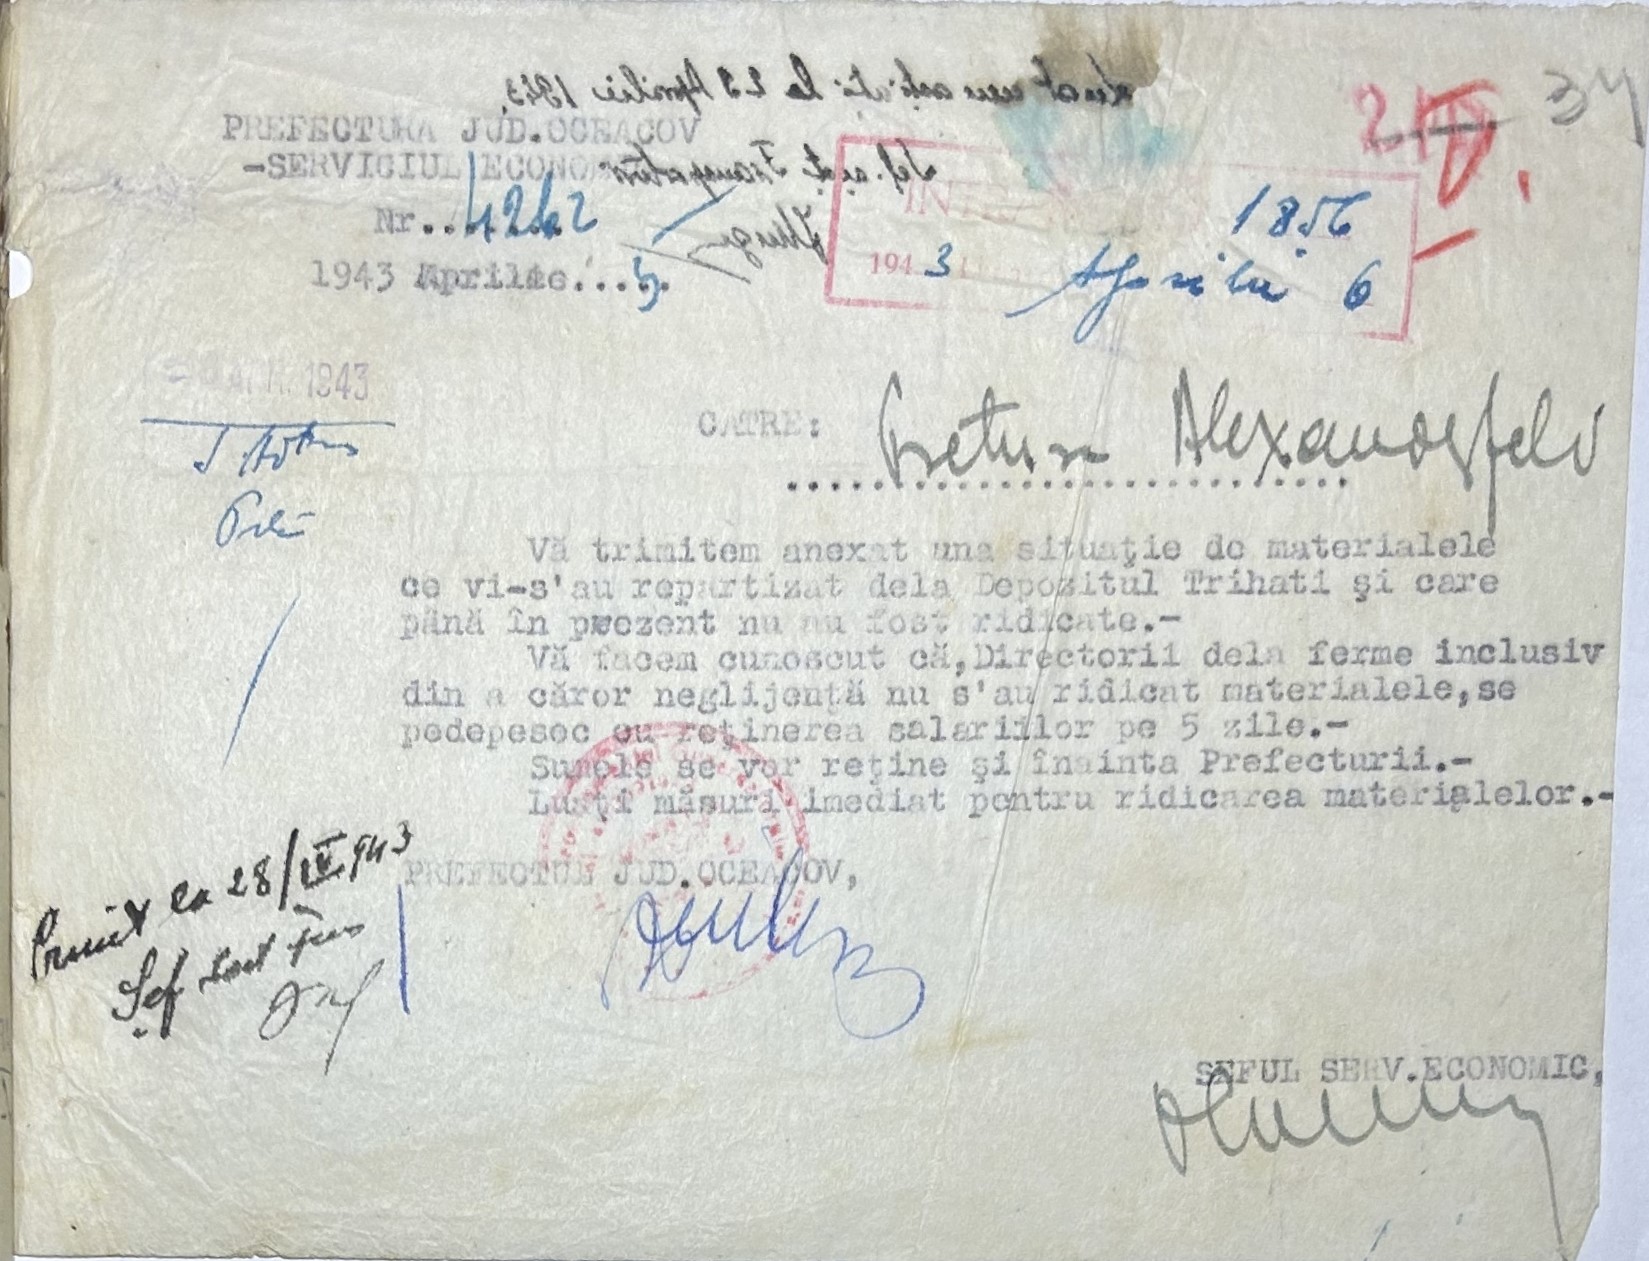 34
PREFECTURA JUD.OCEACOV
-SERVICIUL ECONO
Nr........ 4242
1943 Aprilie..... 5
INT
1856
1943 Aprilie 6
APR. 1943
CATRE: Pretura Alexanderfeld
Vă trimitem anexat una situaţie de materialele
ce vi-s'au repartizat dela Depozitul Trihati şi care
până în prezent nu au fost ridicate.-
Vă facem cunoscut că,Directorii dela ferme inclusiv
din a căror neglijenţă nu s'au ridicat materialele,se
pedepesec cu reţinerea salariilor pe 5 zile.-
Sumele se vor reţine şi înainta Prefecturii.-
Luaţi măsuri imediat pentru ridicarea materialelor.-
PREFECTUL JUD.OCEACOV,
Primit la 28/IV 943
Şef
SEFUL SERV.ECONOMIC,